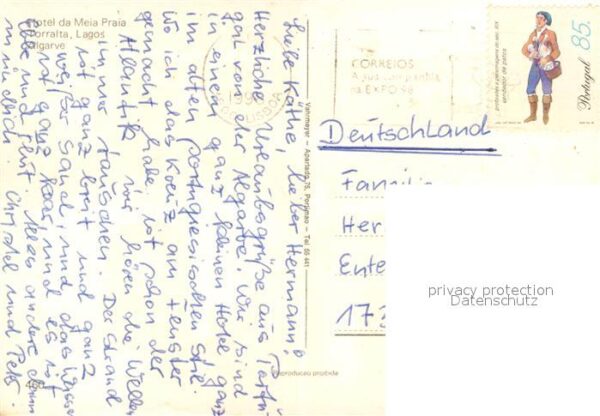 Hotel da Meia Praia
Torralta, Lagos
Algarve
Liebe Käthe, lieber Hermann,
Herzliche Urlaubsgrüße aus Portu
gal an der Algarve. Wir sind
in einem ganz feinen Hotel, ganz
im alten portugiesischen Stil.
Wo ich das Kreuz am Fenster
gemacht habe, ist schon der
Atlantik, wir hören die Wellen
immer rauschen. Der Strand
ist ganz breit und ganz
weißer Sand, und das Wasser
ist ganz klar, und es ist
Ebbe und Flut. Alles andere dann
mündlich. Christel und Peter
460
Vistemayer – Apartado 75, Portimao – Tel. 55 441
Reproduceu proibida
CORREIOS
A sua companhia
na EXPO 98
LISBOA
85.
Portugal
profissões e personagens do séc. XIX
vendedor de patos
Deutschland
Familie
Her
Ente
173
privacy protection
Datenschutz